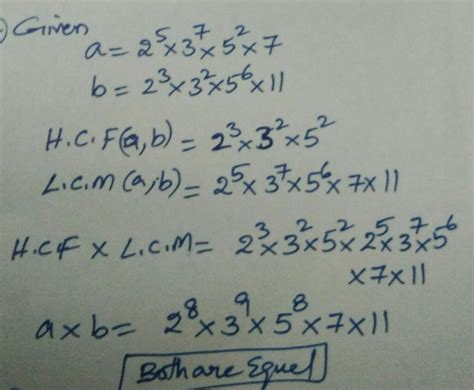 Given
a = 2⁵×3⁷×5²×7
b = 2³×3²×5⁶×11
H.C.F(a,b) = 2³×3²×5²
L.C.M(a,b) = 2⁵×3⁷×5⁶×7×11
H.CF × L.C.M = 2³×3²×5²×2⁵×3⁷×5⁶
×7×11
a×b = 2⁸×3⁹×5⁸×7×11
Both are Equel